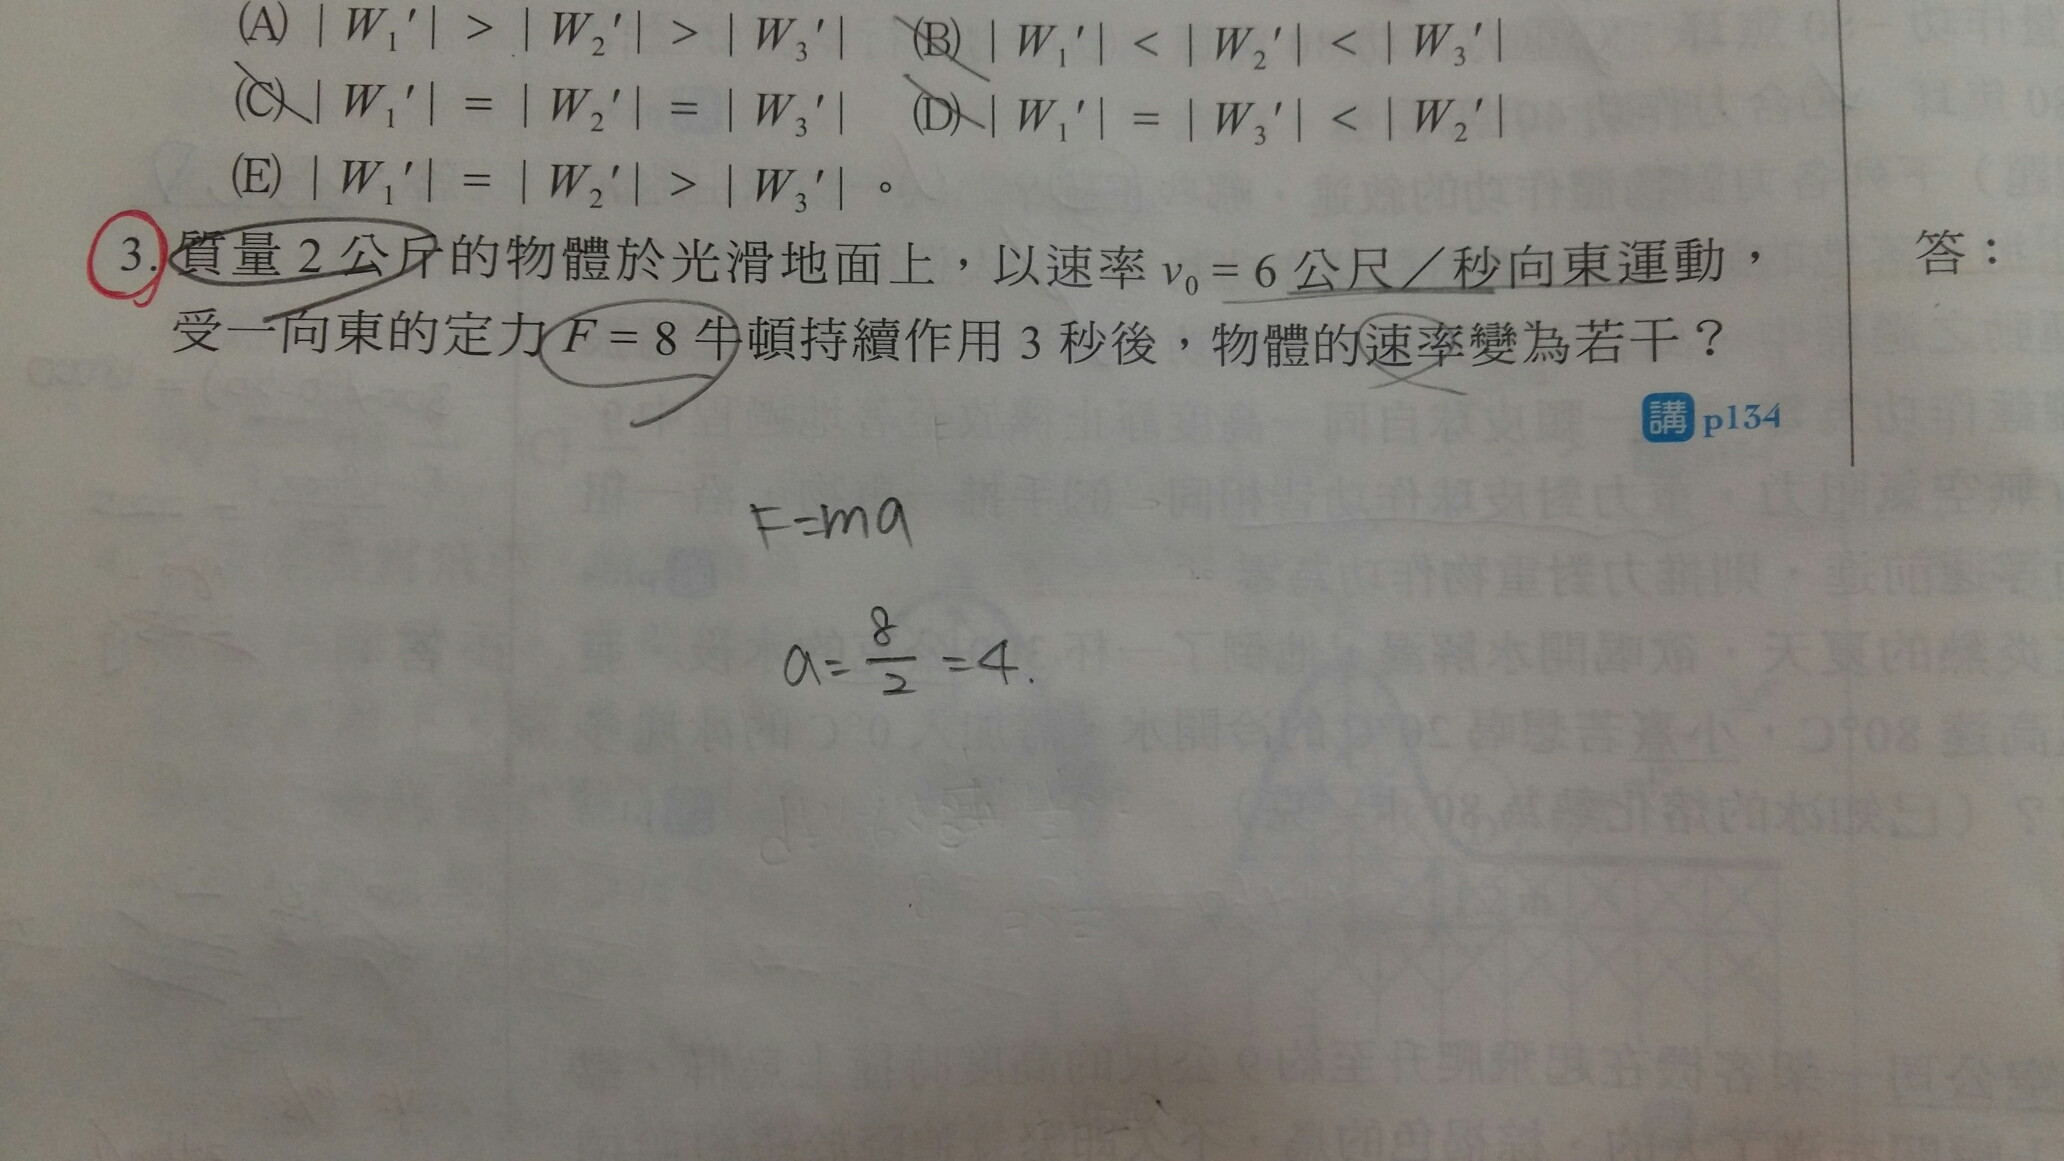 (A) | W₁′ | > | W₂′ | > | W₃′ | (B) | W₁′ | < | W₂′ | < | W₃′ |
(C) | W₁′ | = | W₂′ | = | W₃′ | (D) | W₁′ | = | W₃′ | < | W₂′ |
(E) | W₁′ | = | W₂′ | > | W₃′ | 。
3. 質量 2 公斤的物體於光滑地面上，以速率 v₀ = 6 公尺／秒向東運動，
受一向東的定力 F = 8 牛頓持續作用 3 秒後，物體的速率變為若干？
答：
講 p134
F=ma
a= 8/2 =4.